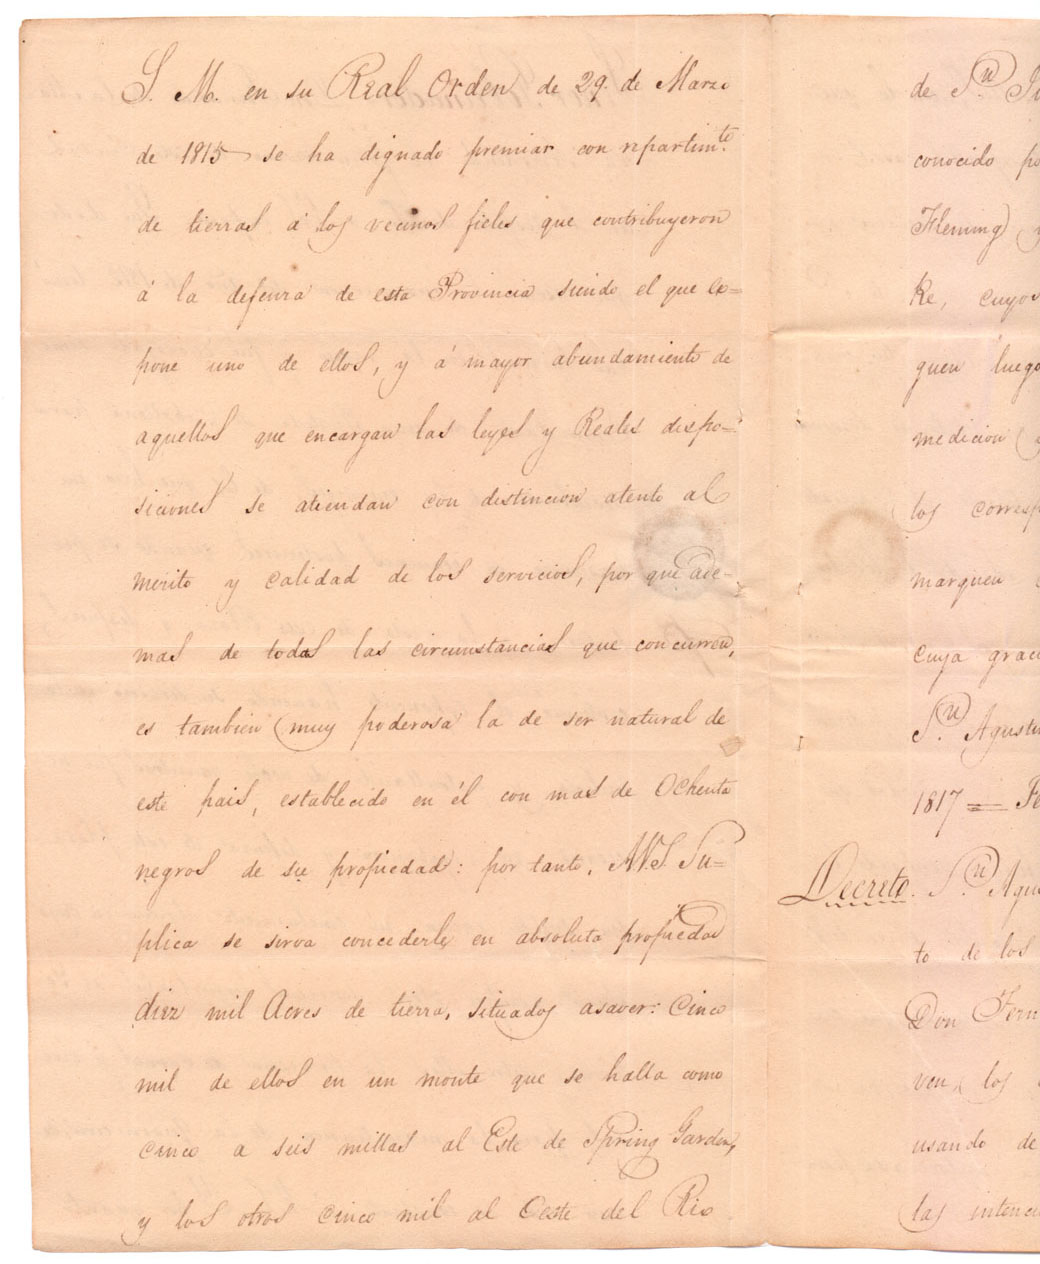 S. M. en su Real Orden de 29 de Marzo
de 1815 se ha dignado premiar con repartim.to
de tierras á los vecinos fieles que contribuyeron
á la defensa de esta Provincia siendo el que ex=
pone uno de ellos, y á mayor abundamiento de
aquellos que encargan las leyes y Reales dispo=
siciones se atiendan con distincion atento al
merito y calidad de los servicios, por que ade-
mas de todas las circunstancias que concurren,
es tambien muy poderosa la de ser natural de
este pais, establecido en él con mas de Ochenta
negros de su propiedad: por tanto. A V.S. Su=
plica se sirva concederle en absoluta propiedad
diez mil Acres de tierra, situados asaver: Cinco
mil de ellos en un monte que se halla como
cinco a seis millas al Este de Spring Garden,
y los otros cinco mil al Oeste del Rio
de S.n
conocido po
Fleming
ke, cuyos
quen luego
medicion
los corresp
marquen
cuya graci
S.n Agustin
1817 = Fe
Decreto. S.n Agu
to de los
Don Fern
ven los
usando de
las intenci